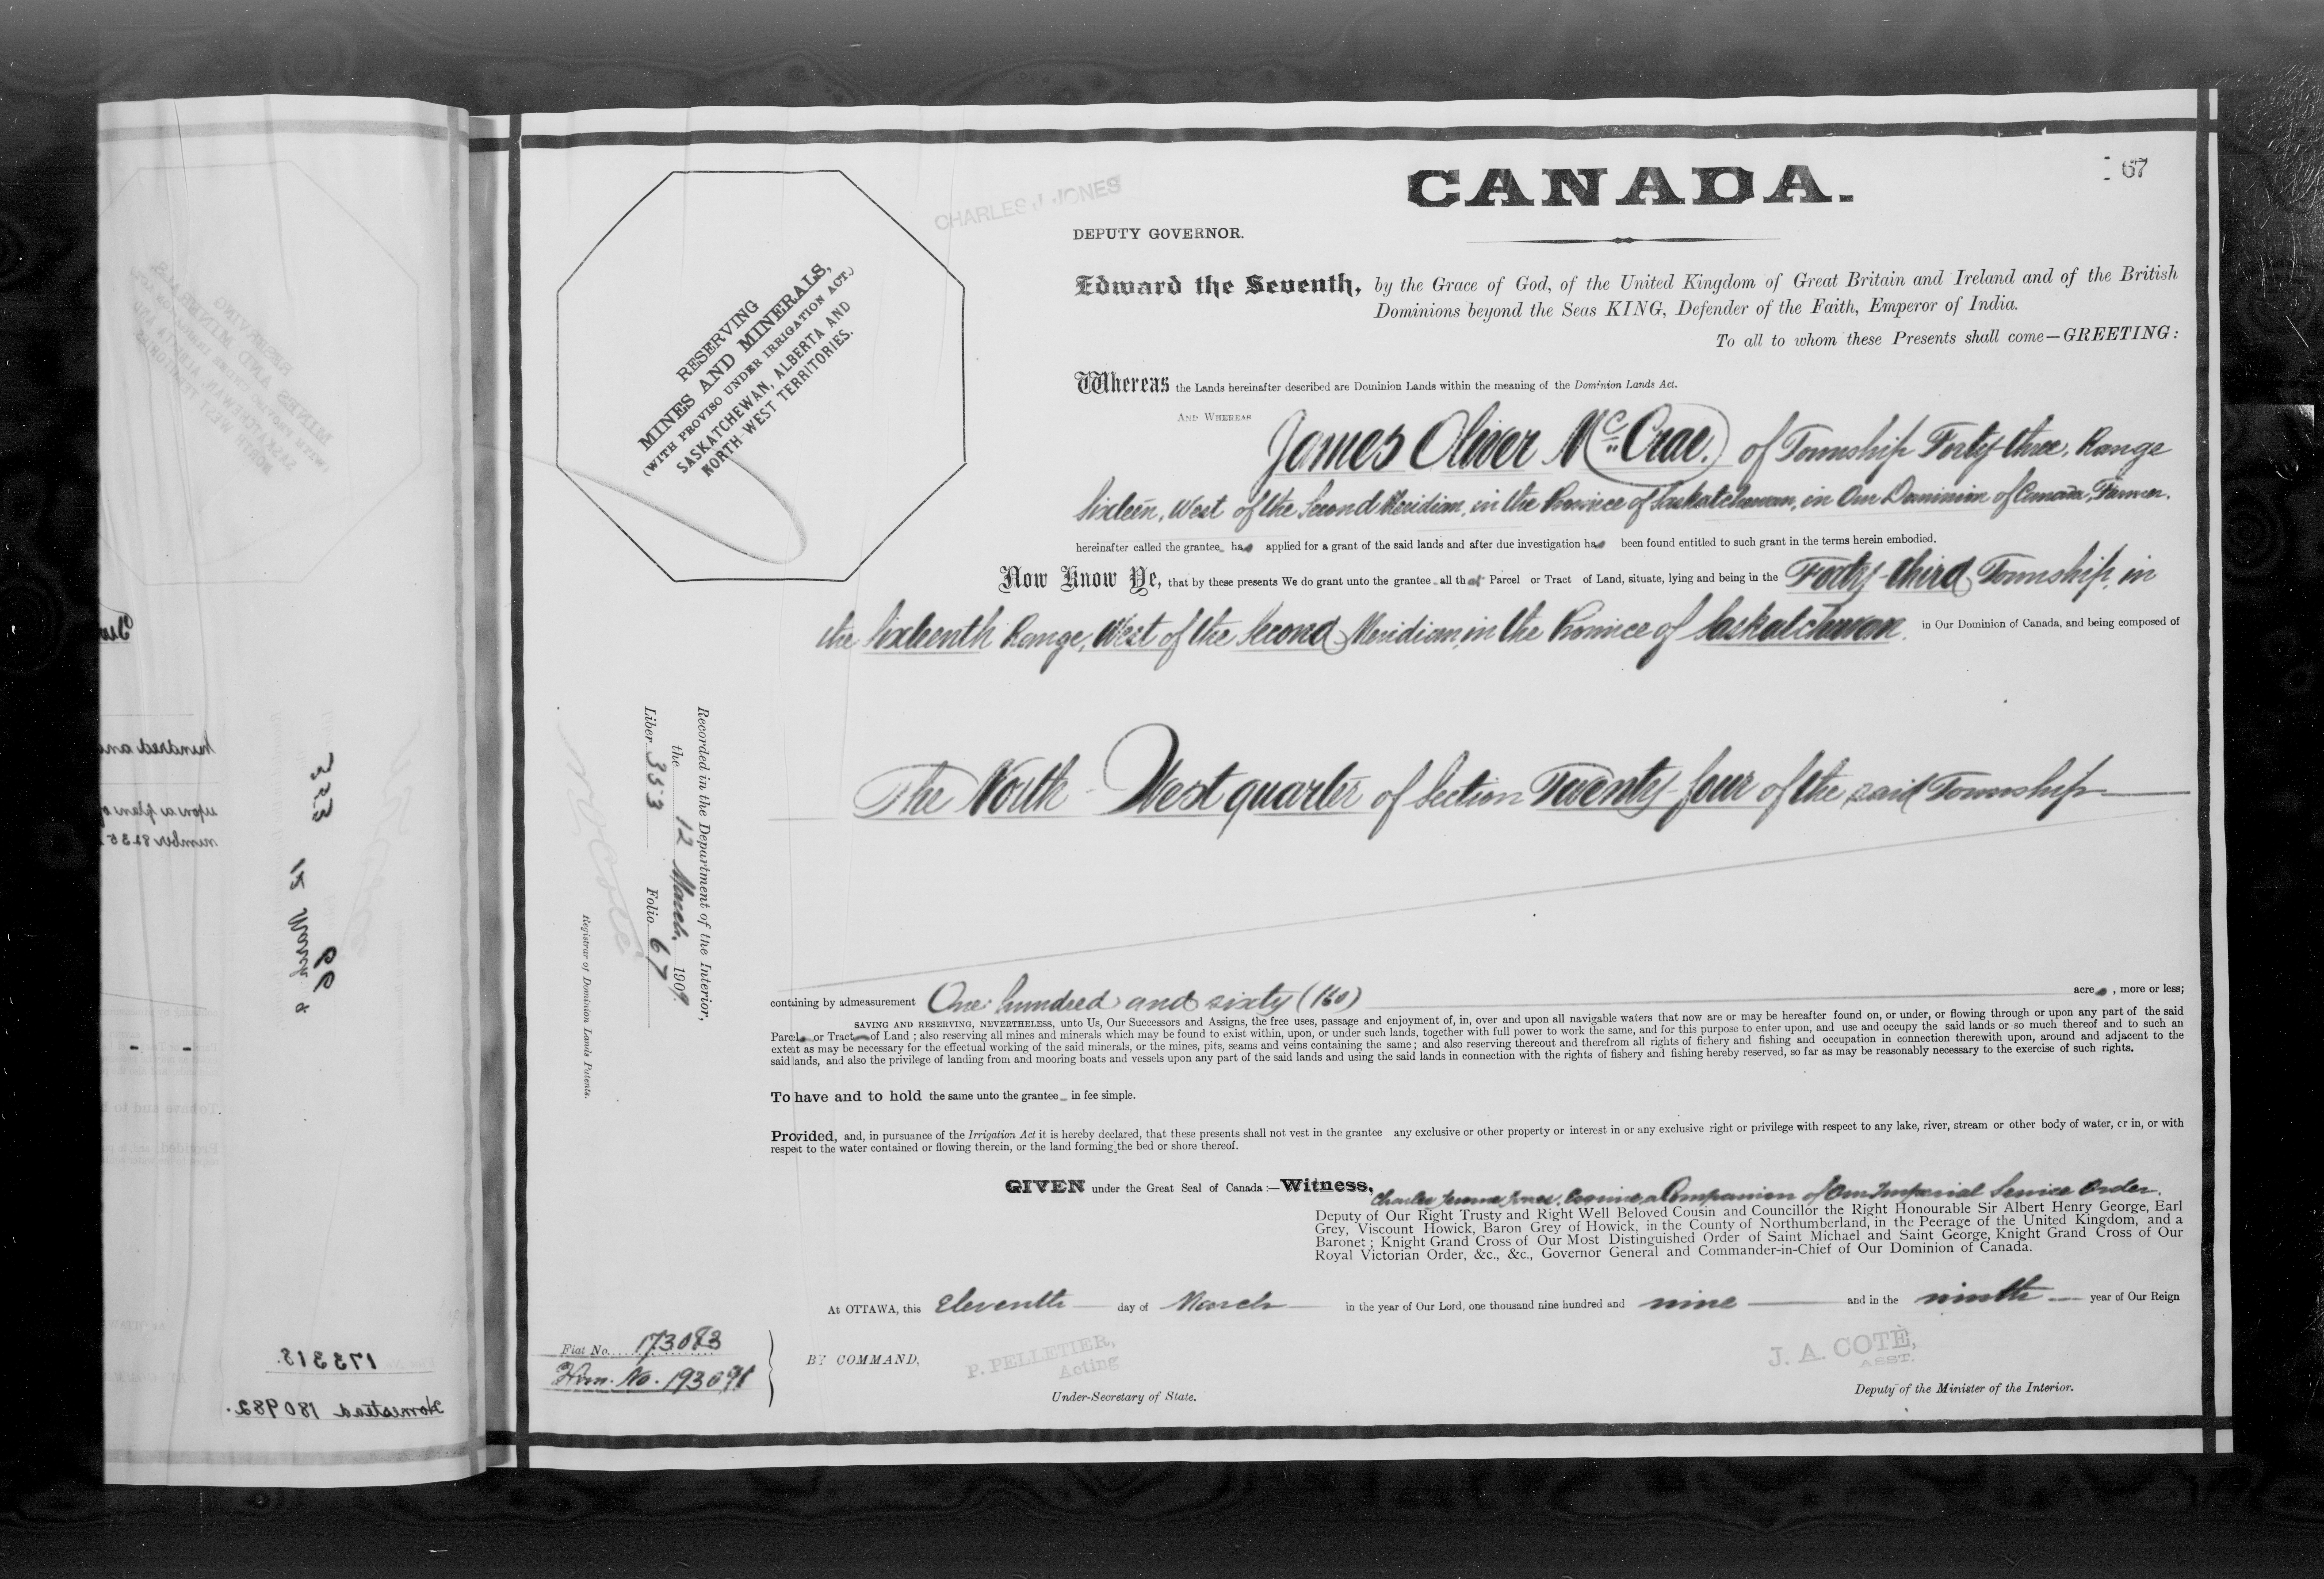 67
CANADA.
CHARLES J. JONES
DEPUTY GOVERNOR.
RESERVING
MINES AND MINERALS,
(WITH PROVISO UNDER IRRIGATION ACT.)
SASKATCHEWAN, ALBERTA AND
NORTH WEST TERRITORIES.
Edward the Seventh, by the Grace of God, of the United Kingdom of Great Britain and Ireland and of the British
Dominions beyond the Seas KING, Defender of the Faith, Emperor of India.
To all to whom these Presents shall come—GREETING:
Whereas the Lands hereinafter described are Dominion Lands within the meaning of the Dominion Lands Act.
AND WHEREAS James Oliver McCrae. of Township Forty-three, Range
Sixteen, West of the Second Meridian, in the Province of Saskatchewan, in Our Dominion of Canada, Farmer.
hereinafter called the grantee has applied for a grant of the said lands and after due investigation has been found entitled to such grant in the terms herein embodied.
Now Know Ye, that by these presents We do grant unto the grantee all that Parcel or Tract of Land, situate, lying and being in the Forty-third Township, in
the Sixteenth Range, West of the Second Meridian, in the Province of Saskatchewan, in Our Dominion of Canada, and being composed of
The North-West quarter of Section Twenty-four of the said Township
containing by admeasurement One hundred and sixty (160) acres, more or less;
SAVING AND RESERVING, NEVERTHELESS, unto Us, Our Successors and Assigns, the free uses, passage and enjoyment of, in, over and upon all navigable waters that now are or may be hereafter found on, or under, or flowing through or upon any part of the said
Parcel or Tract of Land; also reserving all mines and minerals which may be found to exist within, upon, or under such lands, together with full power to work the same, and for this purpose to enter upon, and use and occupy the said lands or so much thereof and to such an
extent as may be necessary for the effectual working of the said minerals, or the mines, pits, seams and veins containing the same; and also reserving thereout and therefrom all rights of fishery and fishing and occupation in connection therewith upon, around and adjacent to the
said lands, and also the privilege of landing from and mooring boats and vessels upon any part of the said lands and using the said lands in connection with the rights of fishery and fishing hereby reserved, so far as may be reasonably necessary to the exercise of such rights.
To have and to hold the same unto the grantee in fee simple.
Provided, and, in pursuance of the Irrigation Act it is hereby declared, that these presents shall not vest in the grantee any exclusive or other property or interest in or any exclusive right or privilege with respect to any lake, river, stream or other body of water, or in, or with
respect to the water contained or flowing therein, or the land forming the bed or shore thereof.
GIVEN under the Great Seal of Canada:—Witness, Charles Jerome Jones, Esquire, a Companion of Our Imperial Service Order.
Deputy of Our Right Trusty and Right Well Beloved Cousin and Councillor the Right Honourable Sir Albert Henry George, Earl
Grey, Viscount Howick, Baron Grey of Howick, in the County of Northumberland, in the Peerage of the United Kingdom, and a
Baronet; Knight Grand Cross of Our Most Distinguished Order of Saint Michael and Saint George, Knight Grand Cross of Our
Royal Victorian Order, &c., &c., Governor General and Commander-in-Chief of Our Dominion of Canada.
At OTTAWA, this Eleventh day of March in the year of Our Lord, one thousand nine hundred and nine and in the ninth year of Our Reign
BY COMMAND,
P. PELLETIER,
Acting
Under-Secretary of State.
J. A. COTÉ,
ASST.
Deputy of the Minister of the Interior.
Fiat No. 173083
Hom. No. 193091
Recorded in the Department of the Interior,
the 12 March, 1909.
Liber 353 Folio 67
N O Coté
Registrar of Dominion Lands Patents.
hundred and
upon a plan of
353
12 March
66
173318.
Homestead 180982.